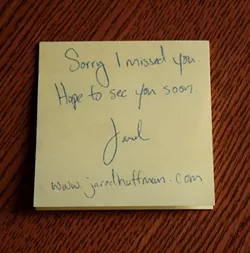 Sorry I missed you.
Hope to see you soon.
Jared
www.jaredhuffman.com